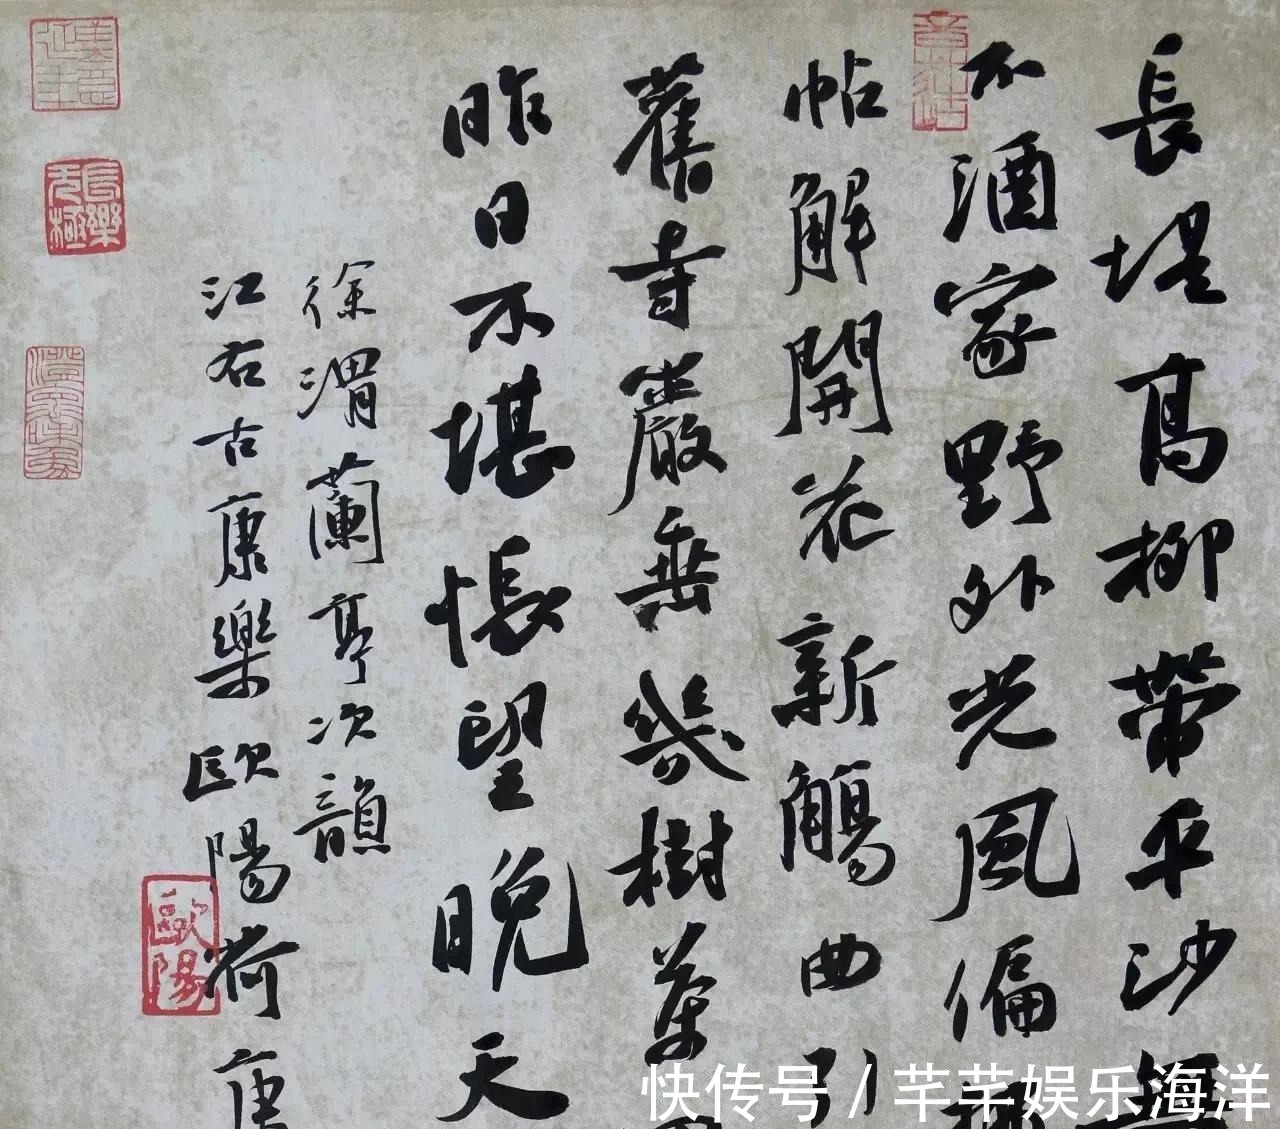 長堤高柳帶平沙無
不酒家野外光風偏
帖解開花新觴曲引
舊寺巖垂幾樹茶
昨日不堪悵望晚天
徐渭蘭亭次韻
江右古康樂歐陽荷庚
長樂无極
歐陽
快传号 / 芊芊娱乐海洋